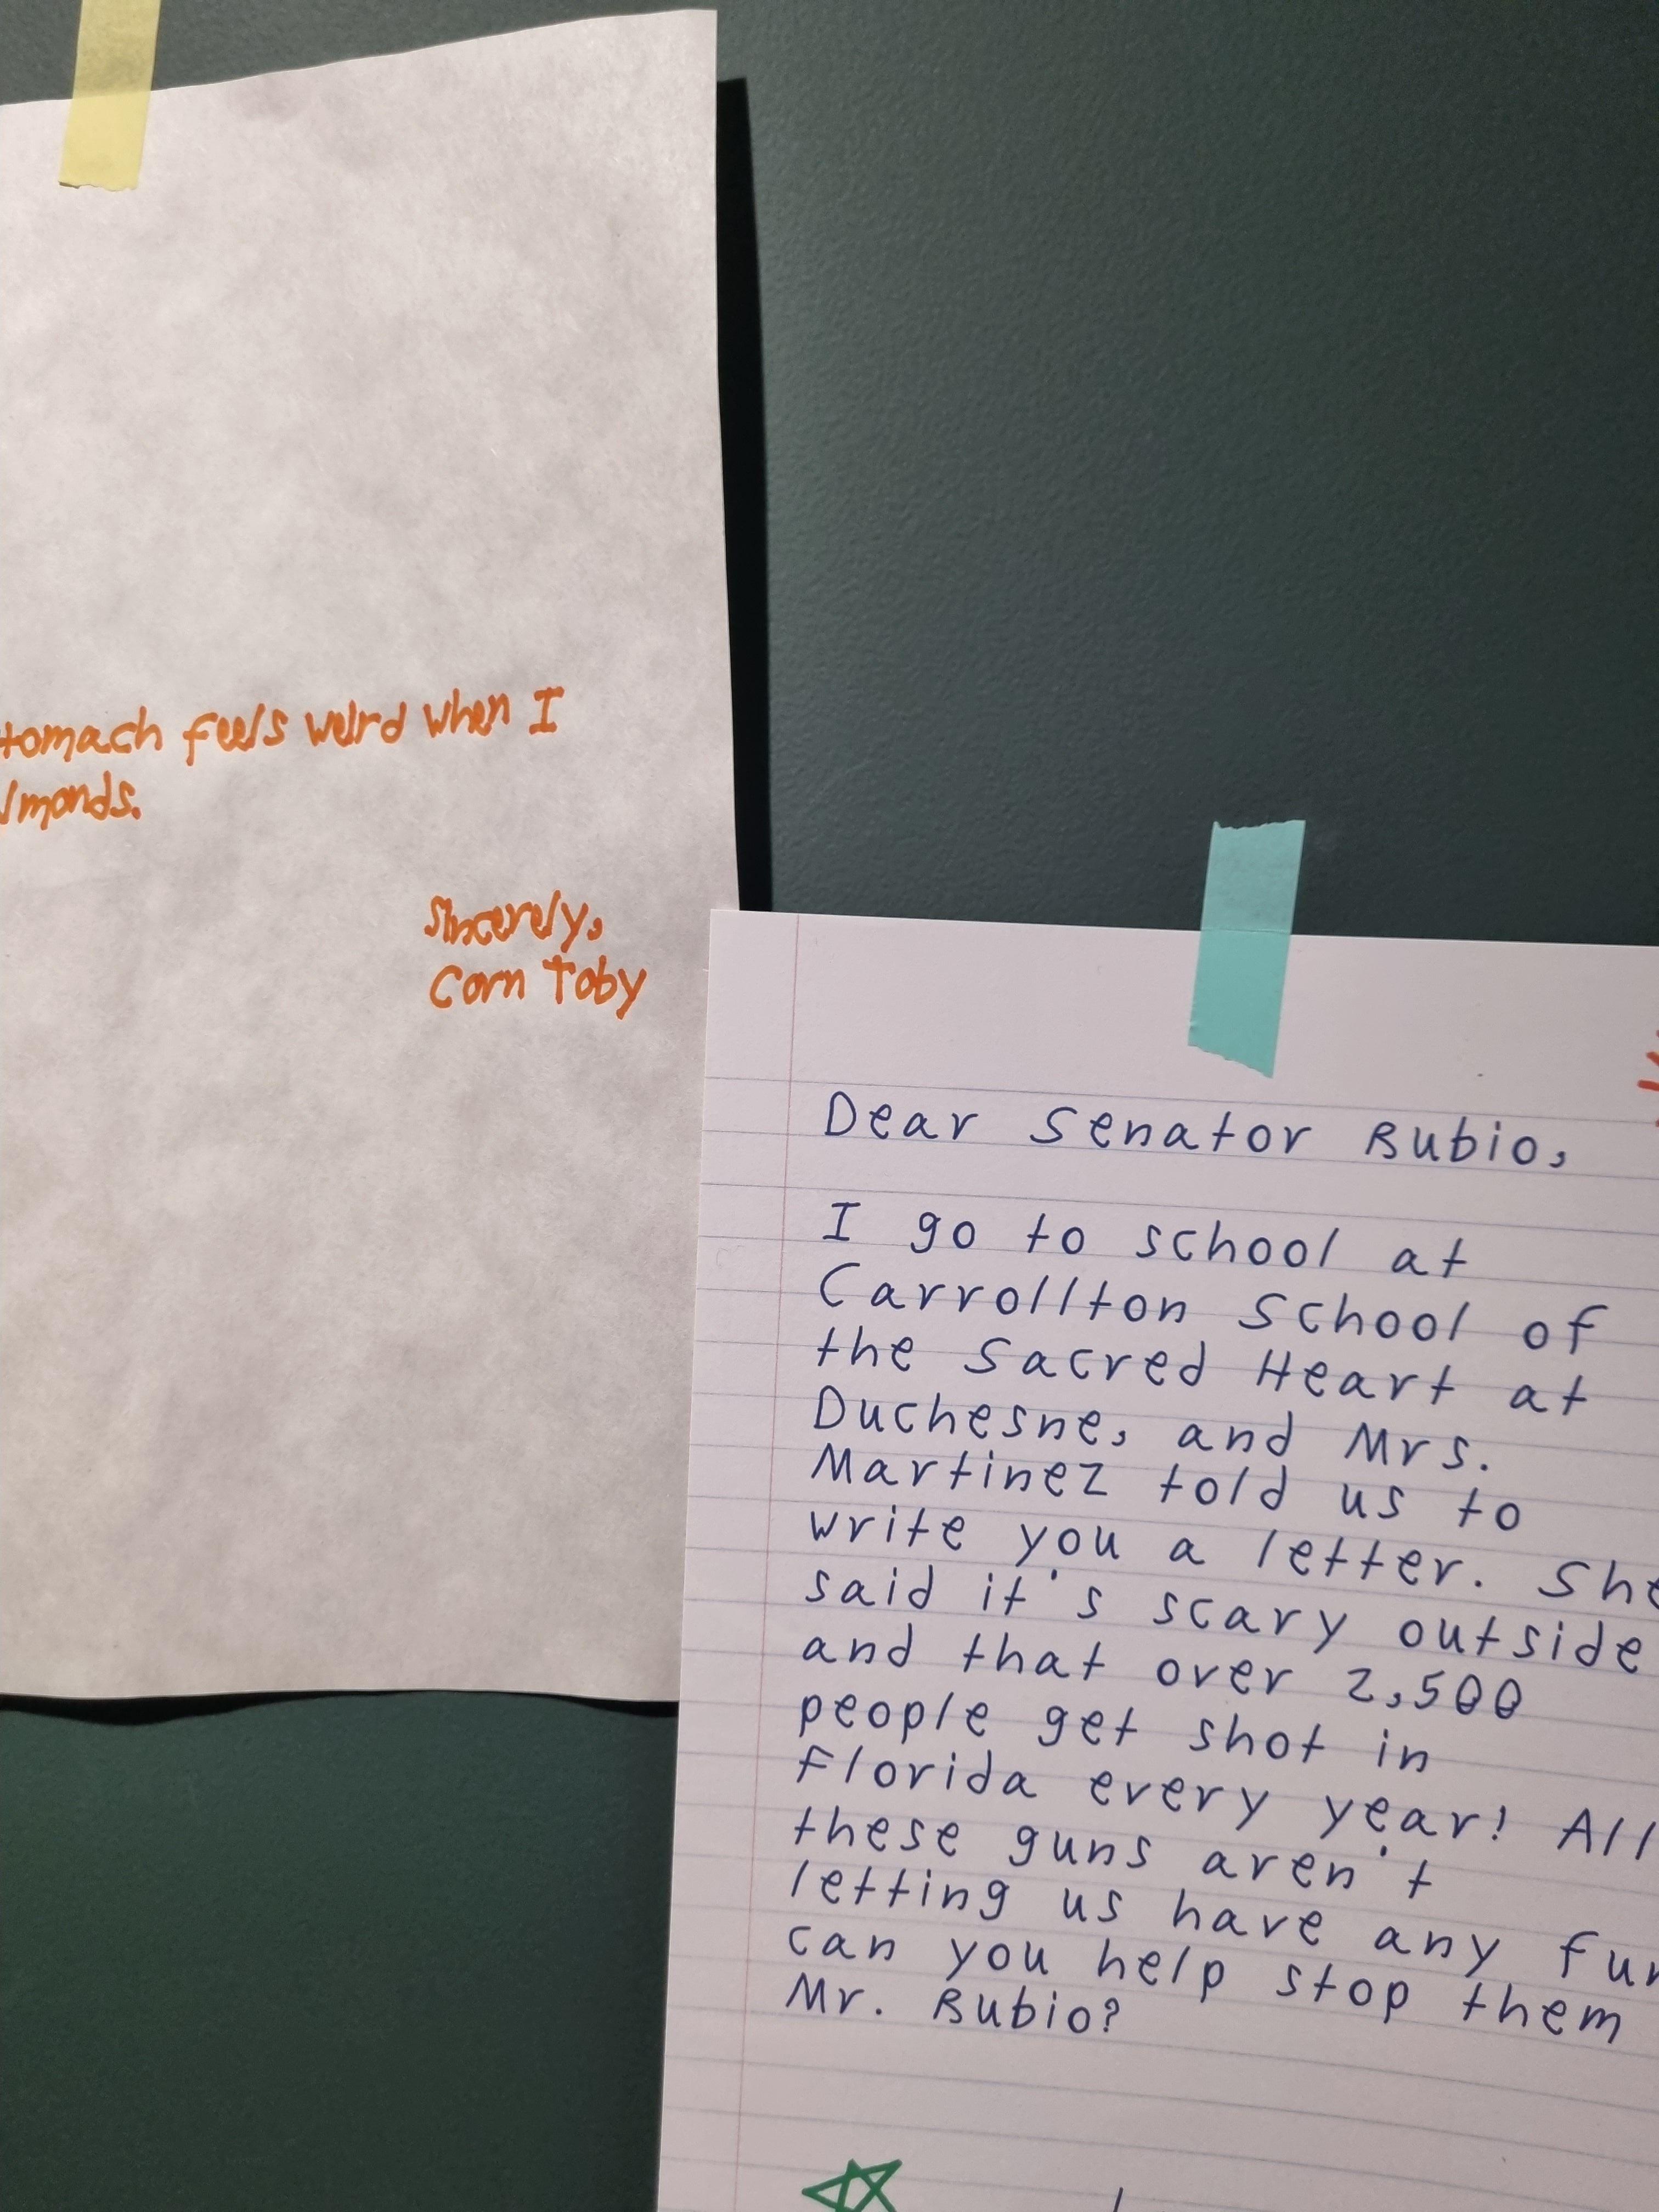 tomach feels weird when I
lmonds.
Sincerely,
Corn Toby
Dear Senator Rubio,
I go to school at
Carrollton School of
the Sacred Heart at
Duchesne, and Mrs.
Martinez told us to
write you a letter. She
said it's scary outside
and that over 2,500
people get shot in
Florida every year! All
these guns aren't
letting us have any fun
can you help stop them
Mr. Rubio?